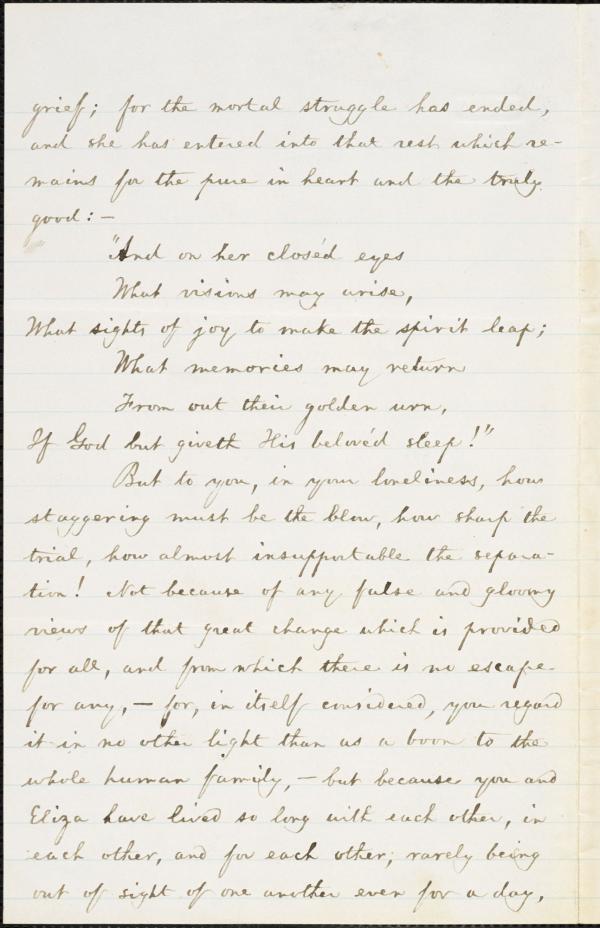 grief; for the mortal struggle has ended,
and she has entered into that rest which re-
mains for the pure in heart and the truly
good: —
"And on her closéd eyes
What visions may arise,
What sights of joy to make the spirit leap;
What memories may return
From out their golden urn,
If God but giveth His belovéd sleep!"
But to you, in your loneliness, how
staggering must be the blow, how sharp the
trial, how almost insupportable the separa-
tion! Not because of any false and gloomy
views of that great change which is provided
for all, and from which there is no escape
for any, — for, in itself considered, you regard
it in no other light than as a boon to the
whole human family, — but because you and
Eliza have lived so long with each other, in
each other, and for each other; rarely being
out of sight of one another even for a day,